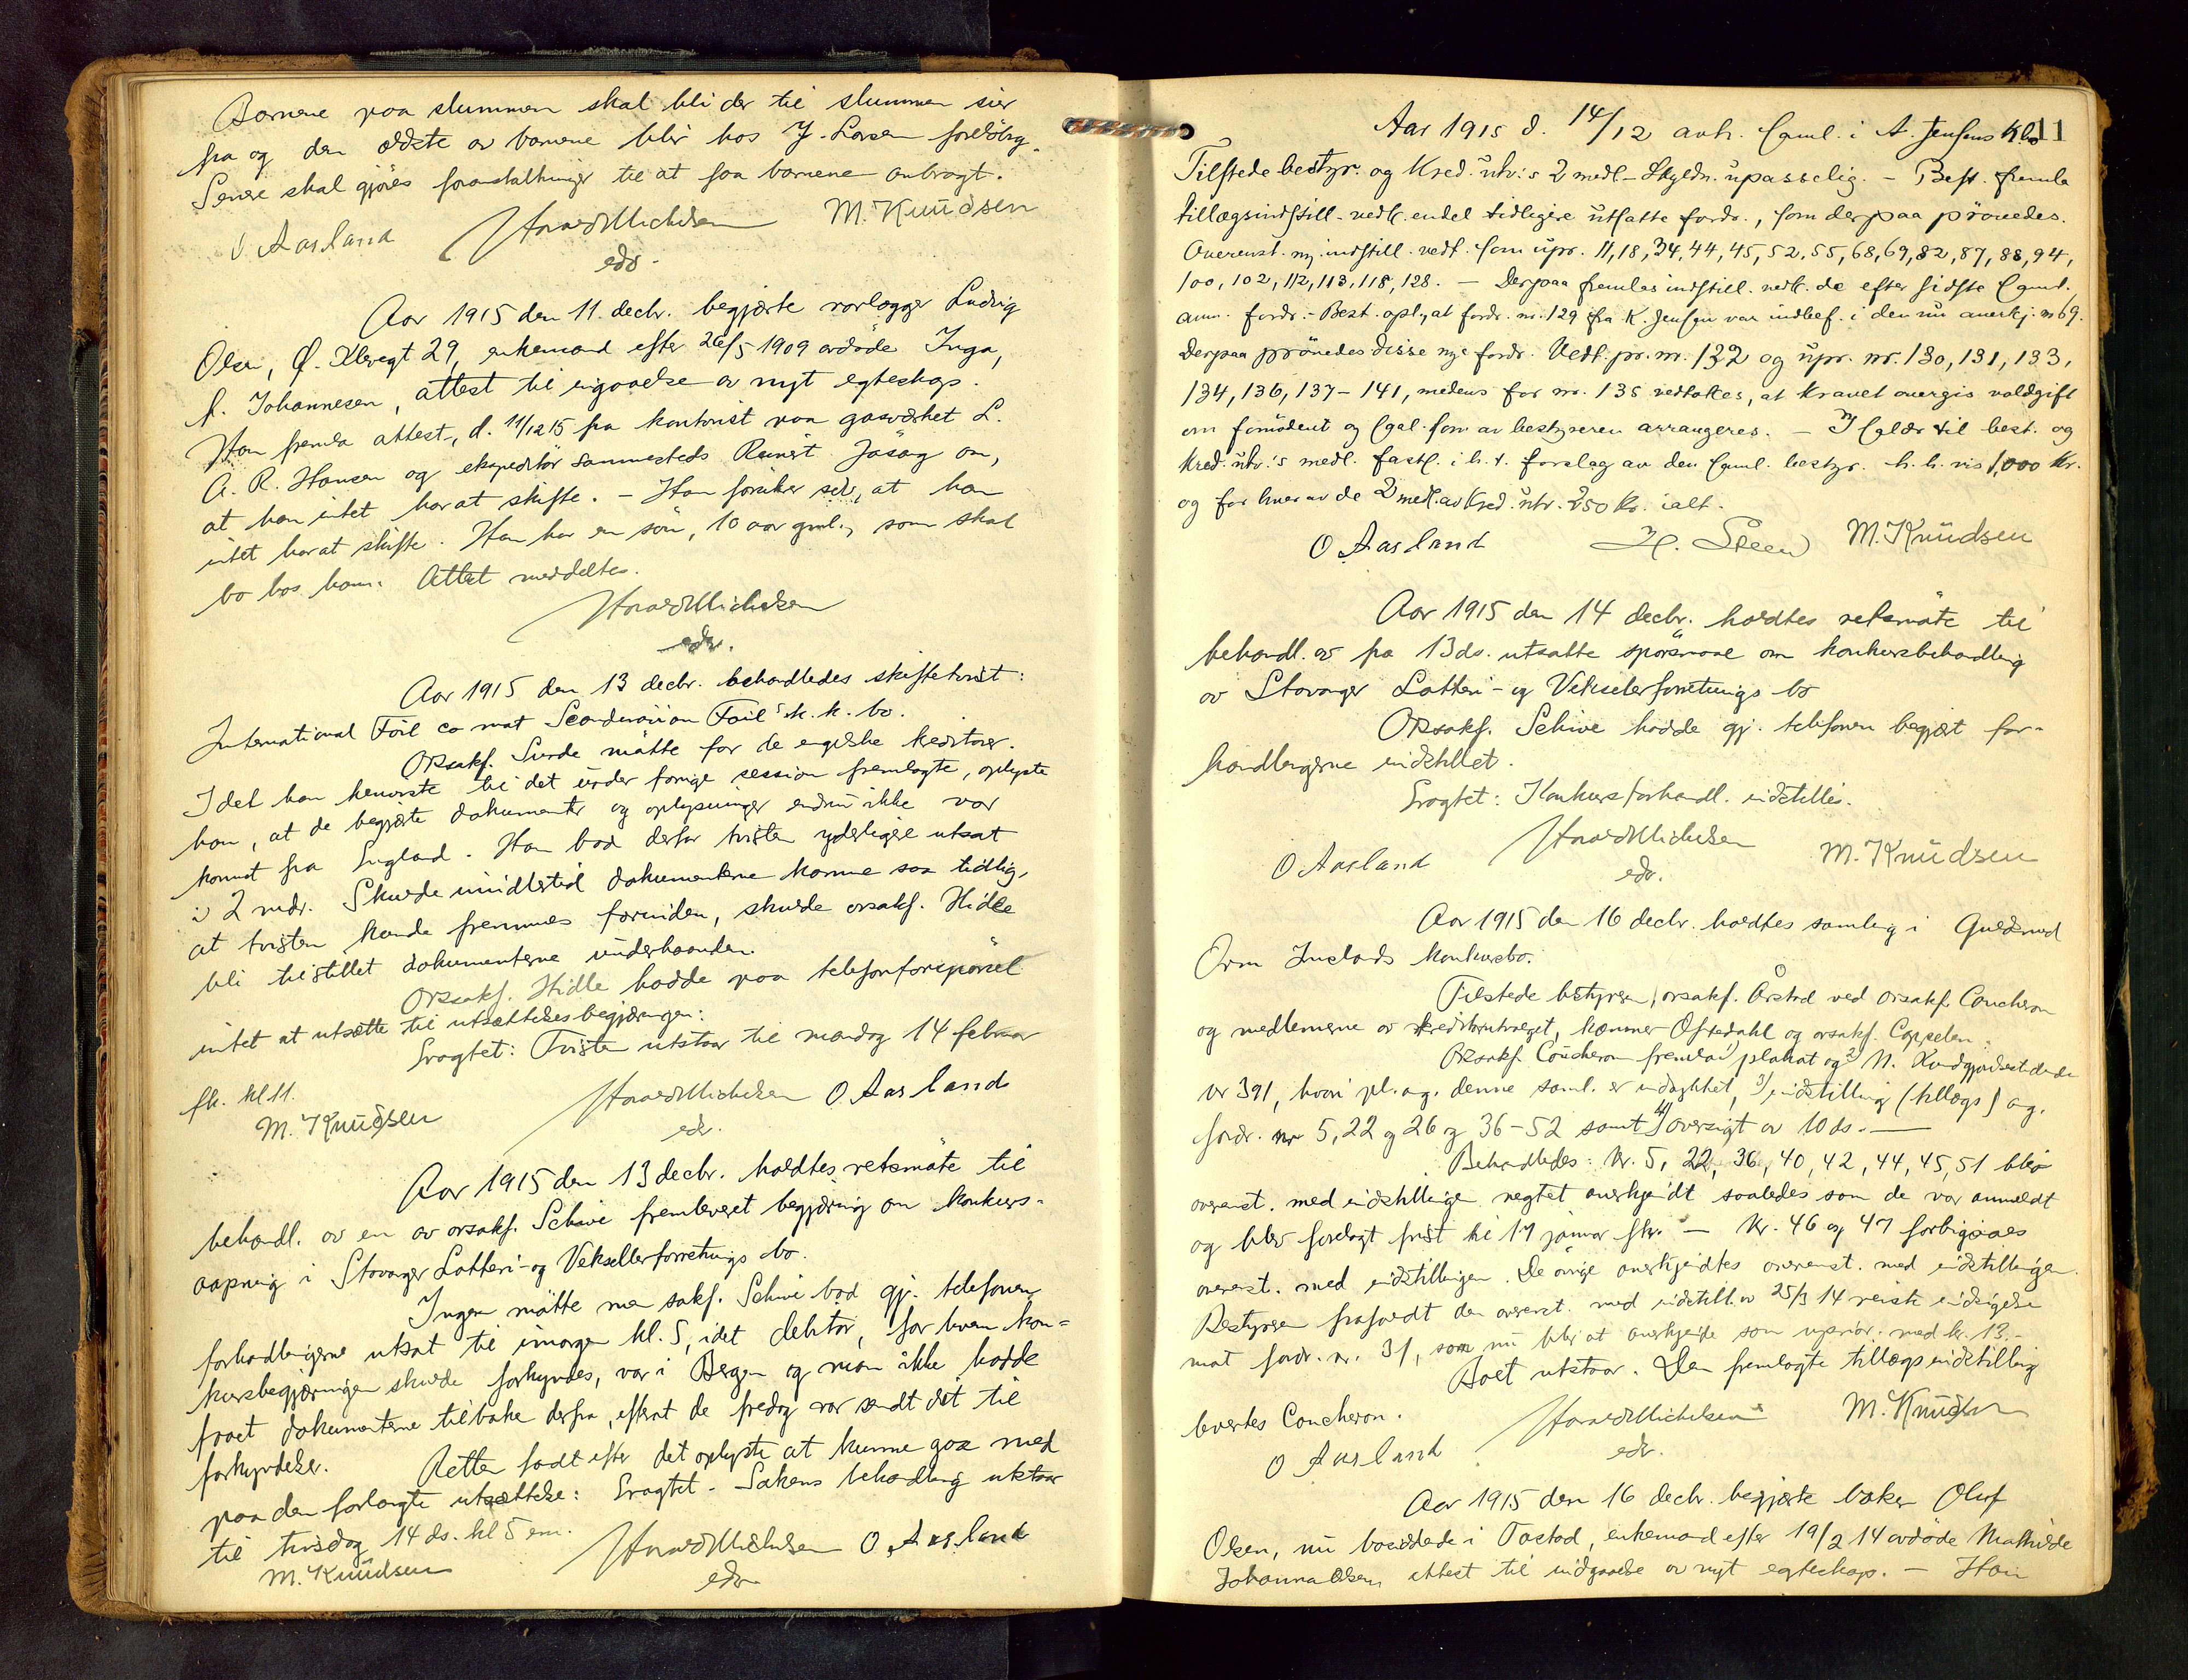 Barnene paa slummen skal bli der til slummen sier
fra og den ældste av barnene blir hos J. Larsen foreløbig.
Senere skal gjöres foranstaltninger til at faa barnene anbragt.
O Aasland Harald Michelsen M. Knudsen
edv.
Aar 1915 den 11. decbr. begjærte rørlægger Ludvig
Olsen, Ø. Kleivegt 29, enkemand efter 26/5 1909 avdöde Inga,
f. Johannesen, attest til ingaaelse av nyt egteskap.
Han fremla attest, d. 11/12 15 fra kontorist paa gasværket L.
A. R. Hansen og ekspeditör sammesteds Reinert Jåsøg om,
at han intet har at skifte. - Han forsikrer selv, at han
intet har at skifte. Han har en sön, 10 aar gml., som skal
bo hos ham. Attest meddeltes.
Harald Michelsen
edv.
Aar 1915 den 13 decbr. behandledes skiftetvist:
International Foil co mot Scandinavian Foil's k. k. bo.
Orsakf. Sunde mötte for de engelske kreditorer.
Idet han henviste til det under forrige session fremlagte, oplyste
han, at de begjærte dokumenter og oplysninger endnu ikke var
kommet fra England. Han bad derfor tvisten yderligere utsat
i 2 mdr. Skulde imidlertid dokumenterne komme saa tidlig,
at tvisten kunde fremmes forinden, skulde orsakf. Hidle
bli tilstillet dokumenterne underhaanden.
Orsakf. Hidle hadde paa telefonforespörsel
intet at utsætte til utsættelsesbegjæringen:
Eragtet: Tvisten utstaar til mandag 14 februar
fk. kl 11.
M. Knudsen Harald Michelsen O Aasland
edv.
Aar 1915 den 13 decbr. holdtes retsmöte til
behandl. av en av orsakf. Schive fremleveret begjæring om konkurs-
aapning i Stavanger Lotteri- og Vekselerforretnings bo.
Ingen mötte men sakf. Schive bad gj. telefonen
forhandlingerne utsat til imorgen kl. 5, idet debitor, for hvem kon=
kursbegjæringen skulde forkyndes, var i Bergen og man ikke hadde
faaet dokumenterne tilbake derfra, efterat de fredag var sendt dit til
forkyndelse.
Retten fandt efter det oplyste at kunne gaa med
paa den forlangte utsættelse: Eragtet - Sakens behandling utstaar
til tirsdag 14 ds. kl 5 em.
M. Knudsen Harald Michelsen O Aasland
edv.
11
Aar 1915 d. 14/12 avh. saml. i A. Jensens kbo
Tilstede bestyr. og Kred.utv.'s 2 medl. - Skyldn. upasselig. - Best. fremla
tillægsindstill. vedk. endel tidligere utsatte fordr., som derpaa prövedes.
Overenst. m. indstill. vedt. som upr. 11, 18, 34, 44, 45, 52, 55, 68, 69, 82, 87, 88, 94,
100, 102, 112, 113, 118, 128. - Derpaa fremlæs indstill. vedk. de efter sidste saml.
anm. fordr. - Best. opl., at fordr. nr. 129 fra K. Jensen var indbef. i den nu anerkj. nr 69.
Derpaa prövedes disse nye fordr. Vedt. pr. nr. 132 og upr. nr. 130, 131, 133,
134, 136, 137 - 141, medens for nr. 135 vedtokes, at kravet overgis voldgift
om fornödent og som av bestyreren arrangeres. - I til best. og
Kred.utv.'s medl. fastl. i h. t. forslag av den saml. bestyr. h. h. vis 1,000 kr.
og for hver av de 2 medl. av Kred.utv. 250 kr. ialt.
O Aasland H. Steen M. Knudsen
Aar 1915 den 14 decbr. holdtes retsmöte til
behandl. av fra 13 ds. utsatte spörsmaal om konkursbehandling
av Stavanger Lotteri- og Vekselerforretnings bo
Orsakf. Schive hadde gj. telefonen begjært for-
handlingerne indstillet.
Eragtet: Konkursforhandl. indstilles.
O Aasland Harald Michelsen M. Knudsen
edv.
Aar 1915 den 16 decbr. holdtes samling i Guldsmed
Orm konkursbo.
Tilstede bestyreren, orsakf. Årstad ved orsakf. Coucheron
og medlemmene av kreditorutvalget, kæmner Oftedahl og orsakf. Cappelen.
Orsakf. Coucheron fremla 1) plakat og 2) N. Kundgjörelsestidende
nr 391, hvori pl. ang. denne saml. er indrykket, 3) indstilling (tillægs) ang.
fordr. nr 5, 22 og 26 og 36 - 52 samt 4) oversigt av 10 ds. -
Behandledes: Nr. 5, 22, 36, 40, 42, 44, 45, 51 blev
overenst. med indstillingen negtet anerkjendt saaledes som de var anmeldt
og blev forelagt frist til 17 januar fkr. - Nr. 46 og 47 forbigaaes
overenst. med indstillingen. De övrige anerkjendtes overenst. med indstillingen.
Bestyreren frafaldt den overenst. med indstill. av 25/3 14 reiste indsigelse
mot fordr. nr. 31, som nu blir at anerkjende som uprior. med kr. 13.-
Boet utstaar. Den fremlagte tillægsindstilling
levertes Coucheron.
O Aasland Harald Michelsen M. Knudsen
edv.
Aar 1915 den 16 decbr. begjærte baker Oluf
Olsen, nu bosiddende i Tastad, enkemand efter 19/2 14 avdöde Mathilde
Johanna Olsen attest til indgaaelse av nyt egteskap. - Han